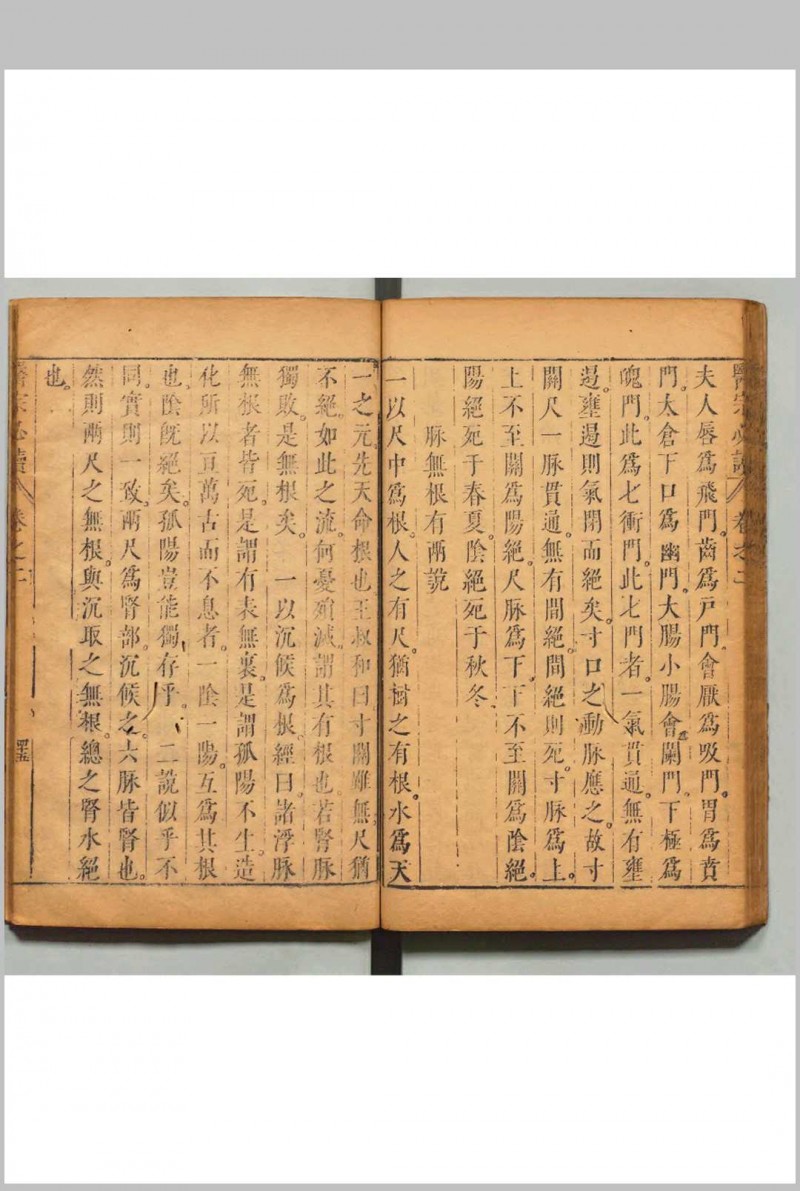 醫宗必讀 卷之二
夫人唇爲飛門。齒爲戸門。會厭爲吸門。胃爲賁
門。太倉下口爲幽門。大腸小腸會闌門。下極爲
魄門。此爲七衝門。此七門者。一氣貫通。無有壅
遏。壅遏則氣閉而絕矣。寸口之動脉應之。故寸
關尺一脉貫通。無有間絕。間絕則死。寸脉爲上。
上不至關爲陽絕。尺脉爲下。下不至關爲陰絕。
陽絕死于春夏。陰絕死于秋冬。
脉無根有兩說
一以尺中爲根。人之有尺。猶樹之有根。水爲天
一之元。先天命根也。王叔和曰。寸關雖無。尺猶
不絕。如此之流。何憂殞滅。謂其有根也。若腎脉
獨敗。是無根矣。一以沉候爲根。經曰。諸浮脉
無根者皆死。是謂有表無裏。是謂孤陽不生。造
化所以亘萬古而不息者。一陰一陽。互爲其根
也。陰既絕矣。孤陽豈能獨存乎。二說似乎不
同。實則一致。兩尺爲腎部。沉候之。六脉皆腎也。
然則兩尺之無根。與沉取之無根。總之腎水絕
也。
醫宗必讀 卷之二